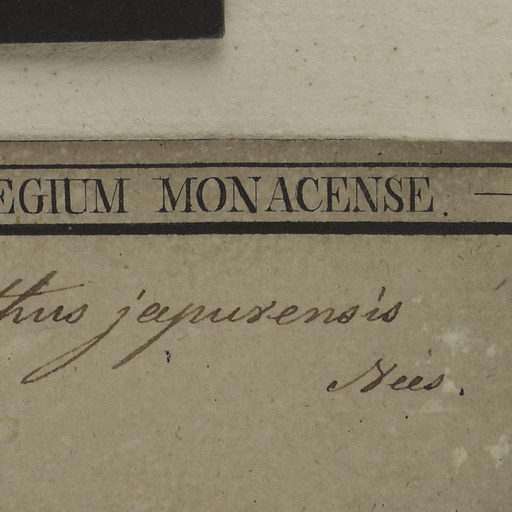 EGIUM MONACENSE. —
thus japurensis
Nees.